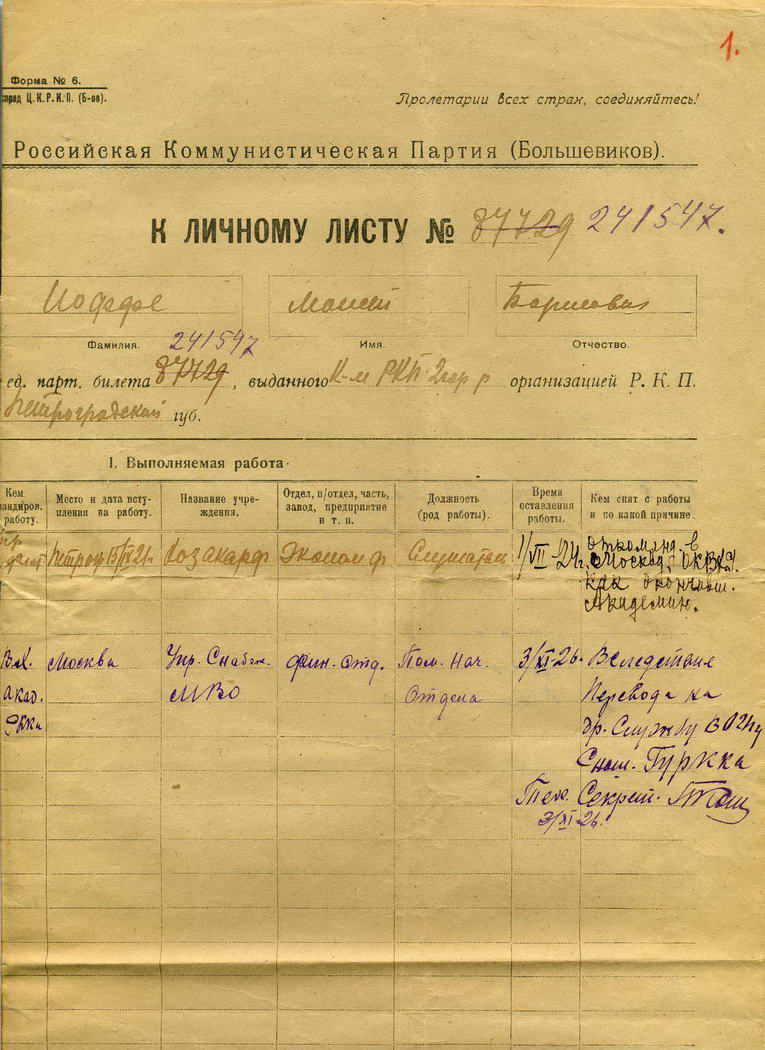 1.
Форма № 6.
спред Ц.К.Р.К.П. (Б-ов).
Пролетарии всех стран, соединяйтесь!
Российская Коммунистическая Партия (Большевиков).
К ЛИЧНОМУ ЛИСТУ № 87729 241547.
Иоффе Моисей Борисович
Фамилия. Имя. Отчество.
241547
ед. парт. билета 87729, выданного К-м РКП 2 гор р организацией Р. К. П.
Петроградской губ.
I. Выполняемая работа
Кем
мандиров.
работу.
Место и дата всту-
пления на работу.
Название учре-
ждения.
Отдел, п/отдел, часть,
завод, предприятие
и т. п.
Должность
(род работы).
Время
оставления
работы.
Кем снят с работы
и по какой причине.
Петрогр 15/IX 21г. Экономф Слушатель 1/VII-24г. откоманд. в
Москов.
как окончивш.
Академию.
В.Х. Москва Упр. Снабж. Фин. Отд. Пом. Нач. 3/XI-26. Вследствие
Акад. МВО Отдела Перевода на
РККА др. Службу в
Снаб. ГУРККА
Тех. Секрет.
3/XI-26.